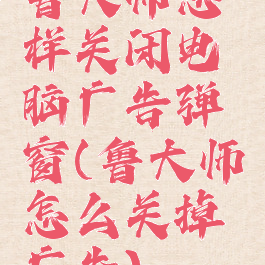 鲁大师怎
样关闭电
脑广告弹
窗(鲁大师
怎么关掉
广告)